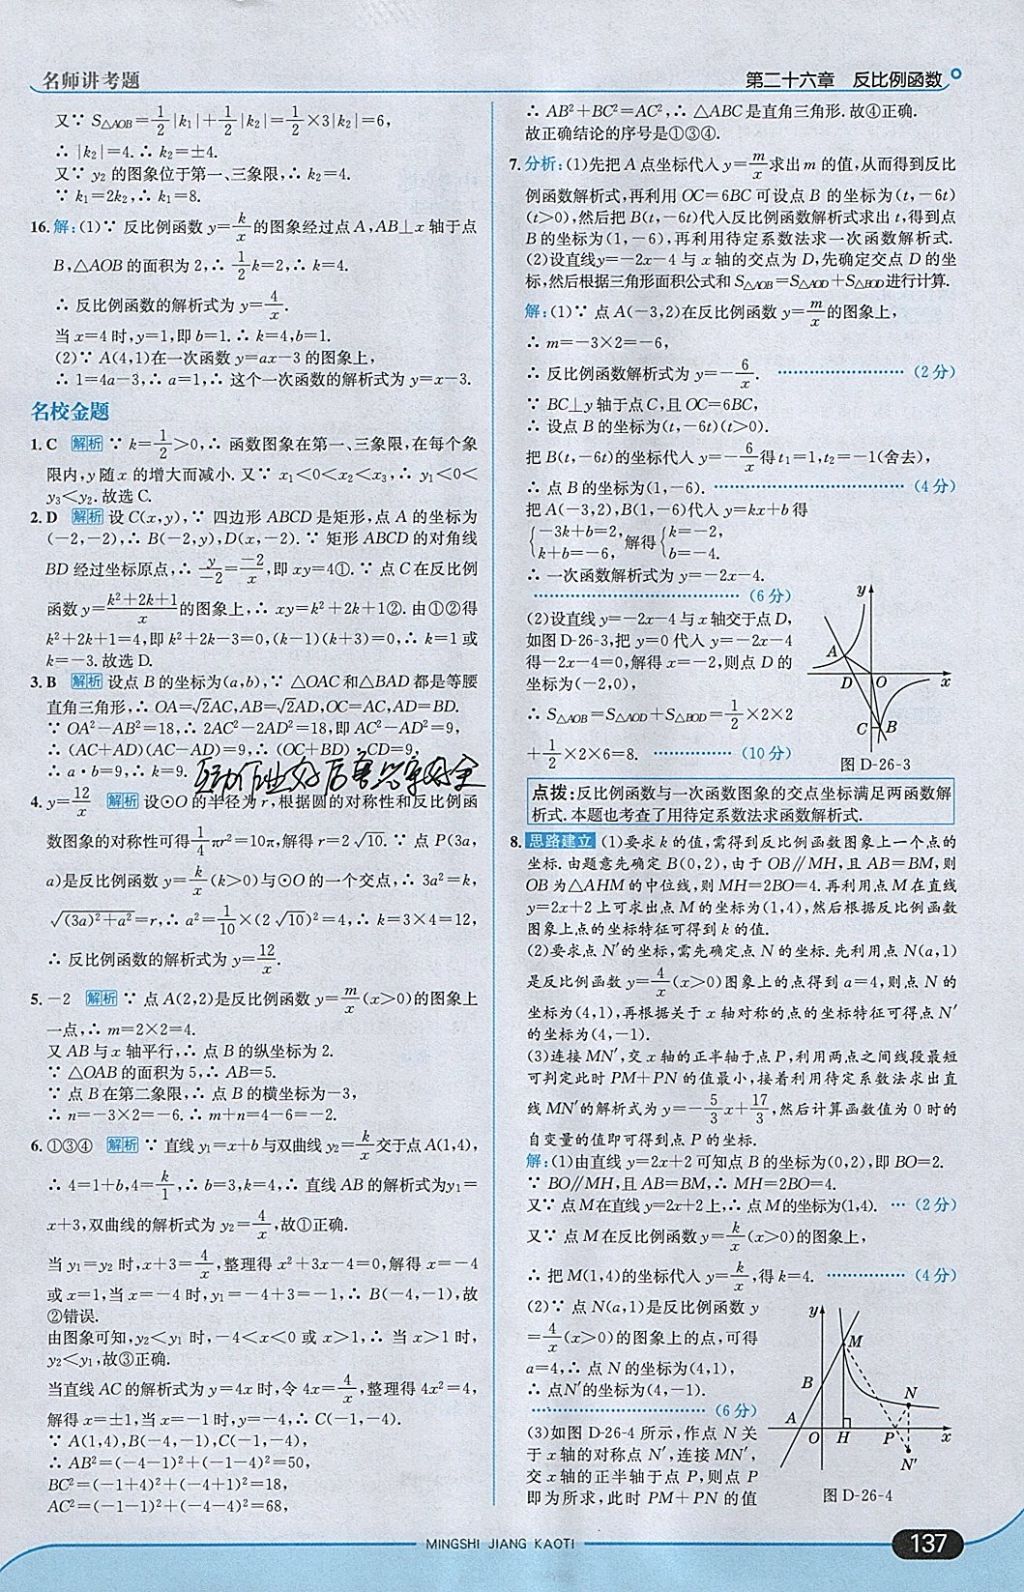 名师讲考题
第二十六章 反比例函数
又∵ S△AOB=1/2|k₁|+1/2|k₂|=1/2×3|k₂|=6,
∴ |k₂|=4.∴ k₂=±4.
又∵ y₂ 的图象位于第一、三象限,∴ k₂=4.
∵ k₁=2k₂,∴ k₁=8.
16. 解:(1)∵ 反比例函数 y=k/x 的图象经过点 A,AB⊥x 轴于点
B,△AOB 的面积为 2,∴ 1/2 k=2,∴ k=4.
∴ 反比例函数的解析式为 y=4/x.
当 x=4 时,y=1,即 b=1.∴ k=4,b=1.
(2)∵ A(4,1)在一次函数 y=ax-3 的图象上,
∴ 1=4a-3,∴ a=1,∴ 这个一次函数的解析式为 y=x-3.
名校金题
1. C 解析 ∵ k=1/2>0,∴ 函数图象在第一、三象限,在每个象
限内,y 随 x 的增大而减小.又∵ x₁<0<x₂<x₃,∴ y₁<0<
y₃<y₂.故选 C.
2. D 解析 设 C(x,y),∵ 四边形 ABCD 是矩形,点 A 的坐标为
(-2,-2),∴ B(-2,y),D(x,-2).∵ 矩形 ABCD 的对角线
BD 经过坐标原点,∴ y/-2=-2/x,即 xy=4①.∵ 点 C 在反比例
函数 y=k²+2k+1/x 的图象上,∴ xy=k²+2k+1②.由①②得
k²+2k+1=4,即 k²+2k-3=0,(k-1)(k+3)=0,∴ k=1 或
k=-3.故选 D.
3. B 解析 设点 B 的坐标为(a,b),∵ △OAC 和△BAD 都是等腰
直角三角形,∴ OA=√2AC,AB=√2AD,OC=AC,AD=BD.
∵ OA²-AB²=18,∴ 2AC²-2AD²=18,即 AC²-AD²=9,
∴ (AC+AD)(AC-AD)=9,∴ (OC+BD)·CD=9,
∴ a·b=9,∴ k=9.
4. y=12/x 解析 设⊙O 的半径为 r,根据圆的对称性和反比例函
数图象的对称性可得 1/4 πr²=10π,解得 r=2√10.∵ 点 P(3a,
a)是反比例函数 y=k/x(k>0)与⊙O 的一个交点,∴ 3a²=k,
√(3a)²+a²=r,∴ a²=1/10×(2√10)²=4,∴ k=3×4=12,
∴ 反比例函数的解析式为 y=12/x.
5. -2 解析 ∵ 点 A(2,2)是反比例函数 y=m/x(x>0)的图象上
一点,∴ m=2×2=4.
又 AB 与 x 轴平行,∴ 点 B 的纵坐标为 2.
∵ △OAB 的面积为 5,∴ AB=5.
∵ 点 B 在第二象限,∴ 点 B 的横坐标为-3,
∴ n=-3×2=-6.∴ m+n=4-6=-2.
6. ①③④ 解析 ∵ 直线 y₁=x+b 与双曲线 y₂=k/x 交于点 A(1,4),
∴ 4=1+b,4=k/1,∴ b=3,k=4,∴ 直线 AB 的解析式为 y₁=
x+3,双曲线的解析式为 y₂=4/x,故①正确.
当 y₁=y₂ 时,x+3=4/x,整理得 x²+3x-4=0,解得 x=-4
或 x=1,当 x=-4 时,y₁=-4+3=-1,∴ B(-4,-1),故
②错误.
由图象可知,y₂<y₁ 时,-4<x<0 或 x>1,∴ 当 x>1 时,
y₂<y₁,故③正确.
当直线 AC 的解析式为 y=4x 时,令 4x=4/x,整理得 4x²=4,
解得 x=±1,当 x=-1 时,y=-4,∴ C(-1,-4).
∵ A(1,4),B(-4,-1),C(-1,-4),
∴ AB²=(-4-1)²+(-1-4)²=50,
BC²=(-1+4)²+(-4+1)²=18,
AC²=(-1-1)²+(-4-4)²=68,
∴ AB²+BC²=AC²,∴ △ABC 是直角三角形.故④正确.
故正确结论的序号是①③④.
7. 分析:(1)先把 A 点坐标代入 y=m/x 求出 m 的值,从而得到反比
例函数解析式,再利用 OC=6BC 可设点 B 的坐标为(t,-6t)
(t>0),然后把 B(t,-6t)代入反比例函数解析式求出 t,得到点
B 的坐标为(1,-6),再利用待定系数法求一次函数解析式.
(2)设直线 y=-2x-4 与 x 轴的交点为 D,先确定交点 D 的坐
标,然后根据三角形面积公式和 S△AOB=S△AOD+S△BOD进行计算.
解:(1)∵ 点 A(-3,2)在反比例函数 y=m/x 的图象上,
∴ m=-3×2=-6,
∴ 反比例函数解析式为 y=-6/x. ……………………(2 分)
∵ BC⊥y 轴于点 C,且 OC=6BC,
∴ 设点 B 的坐标为(t,-6t)(t>0).
把 B(t,-6t)的坐标代入 y=-6/x 得 t₁=1,t₂=-1(舍去),
∴ 点 B 的坐标为(1,-6). ……………………(4 分)
把 A(-3,2),B(1,-6)代入 y=kx+b 得
{-3k+b=2, k+b=-6, 解得 {k=-2, b=-4.
∴ 一次函数解析式为 y=-2x-4.
……………………(6 分)
(2)设直线 y=-2x-4 与 x 轴交于点 D,
如图 D-26-3,把 y=0 代入 y=-2x-4
得-2x-4=0,解得 x=-2,则点 D 的
坐标为(-2,0),
∴ S△AOB=S△AOD+S△BOD=1/2×2×2
+1/2×2×6=8. ……………(10 分)
y
A
D
O
x
C
B
图 D-26-3
点拨:反比例函数与一次函数图象的交点坐标满足两函数解
析式.本题也考查了用待定系数法求函数解析式.
8. 思路建立 (1)要求 k 的值,需得到反比例函数图象上一个点的
坐标.由题意先确定 B(0,2),由于 OB∥MH,且 AB=BM,则
OB 为△AHM 的中位线,则 MH=2BO=4.再利用点 M 在直线
y=2x+2 上可求出点 M 的坐标为(1,4),然后根据反比例函数
图象上点的坐标特征可得到 k 的值.
(2)要求点 N′的坐标,需先确定点 N 的坐标.先利用点 N(a,1)
是反比例函数 y=4/x(x>0)图象上的点得到 a=4,则点 N 的
坐标为(4,1),再根据关于 x 轴对称的点的坐标特征可得点 N′
的坐标为(4,-1).
(3)连接 MN′,交 x 轴的正半轴于点 P,利用两点之间线段最短
可判定此时 PM+PN 的值最小,接着利用待定系数法求出直
线 MN′的解析式为 y=-5/3 x+17/3,然后计算函数值为 0 时的
自变量的值即可得到点 P 的坐标.
解:(1)由直线 y=2x+2 可知点 B 的坐标为(0,2),即 BO=2.
∵ BO∥MH,且 AB=BM,∴ MH=2BO=4.
又∵ 点 M 在直线 y=2x+2 上,∴ 点 M 的坐标为(1,4). …(2 分)
又∵ 点 M 在反比例函数 y=k/x(x>0)的图象上,
∴ 把 M(1,4)的坐标代入 y=k/x,得 k=4. ……………(4 分)
(2)∵ 点 N(a,1)是反比例函数 y
=4/x(x>0)的图象上的点,可得
a=4,∴ 点 N 的坐标为(4,1),
∴ 点N′的坐标为(4,-1).
……………………(6 分)
(3)如图 D-26-4 所示,作点 N 关
于 x 轴的对称点 N′,连接 MN′,
交 x 轴的正半轴于点 P,则点 P
即为所求,此时 PM+PN 的值
y
M
B
N
A
O
H
P
x
N′
图 D-26-4
MINGSHI JIANG KAOTI
137